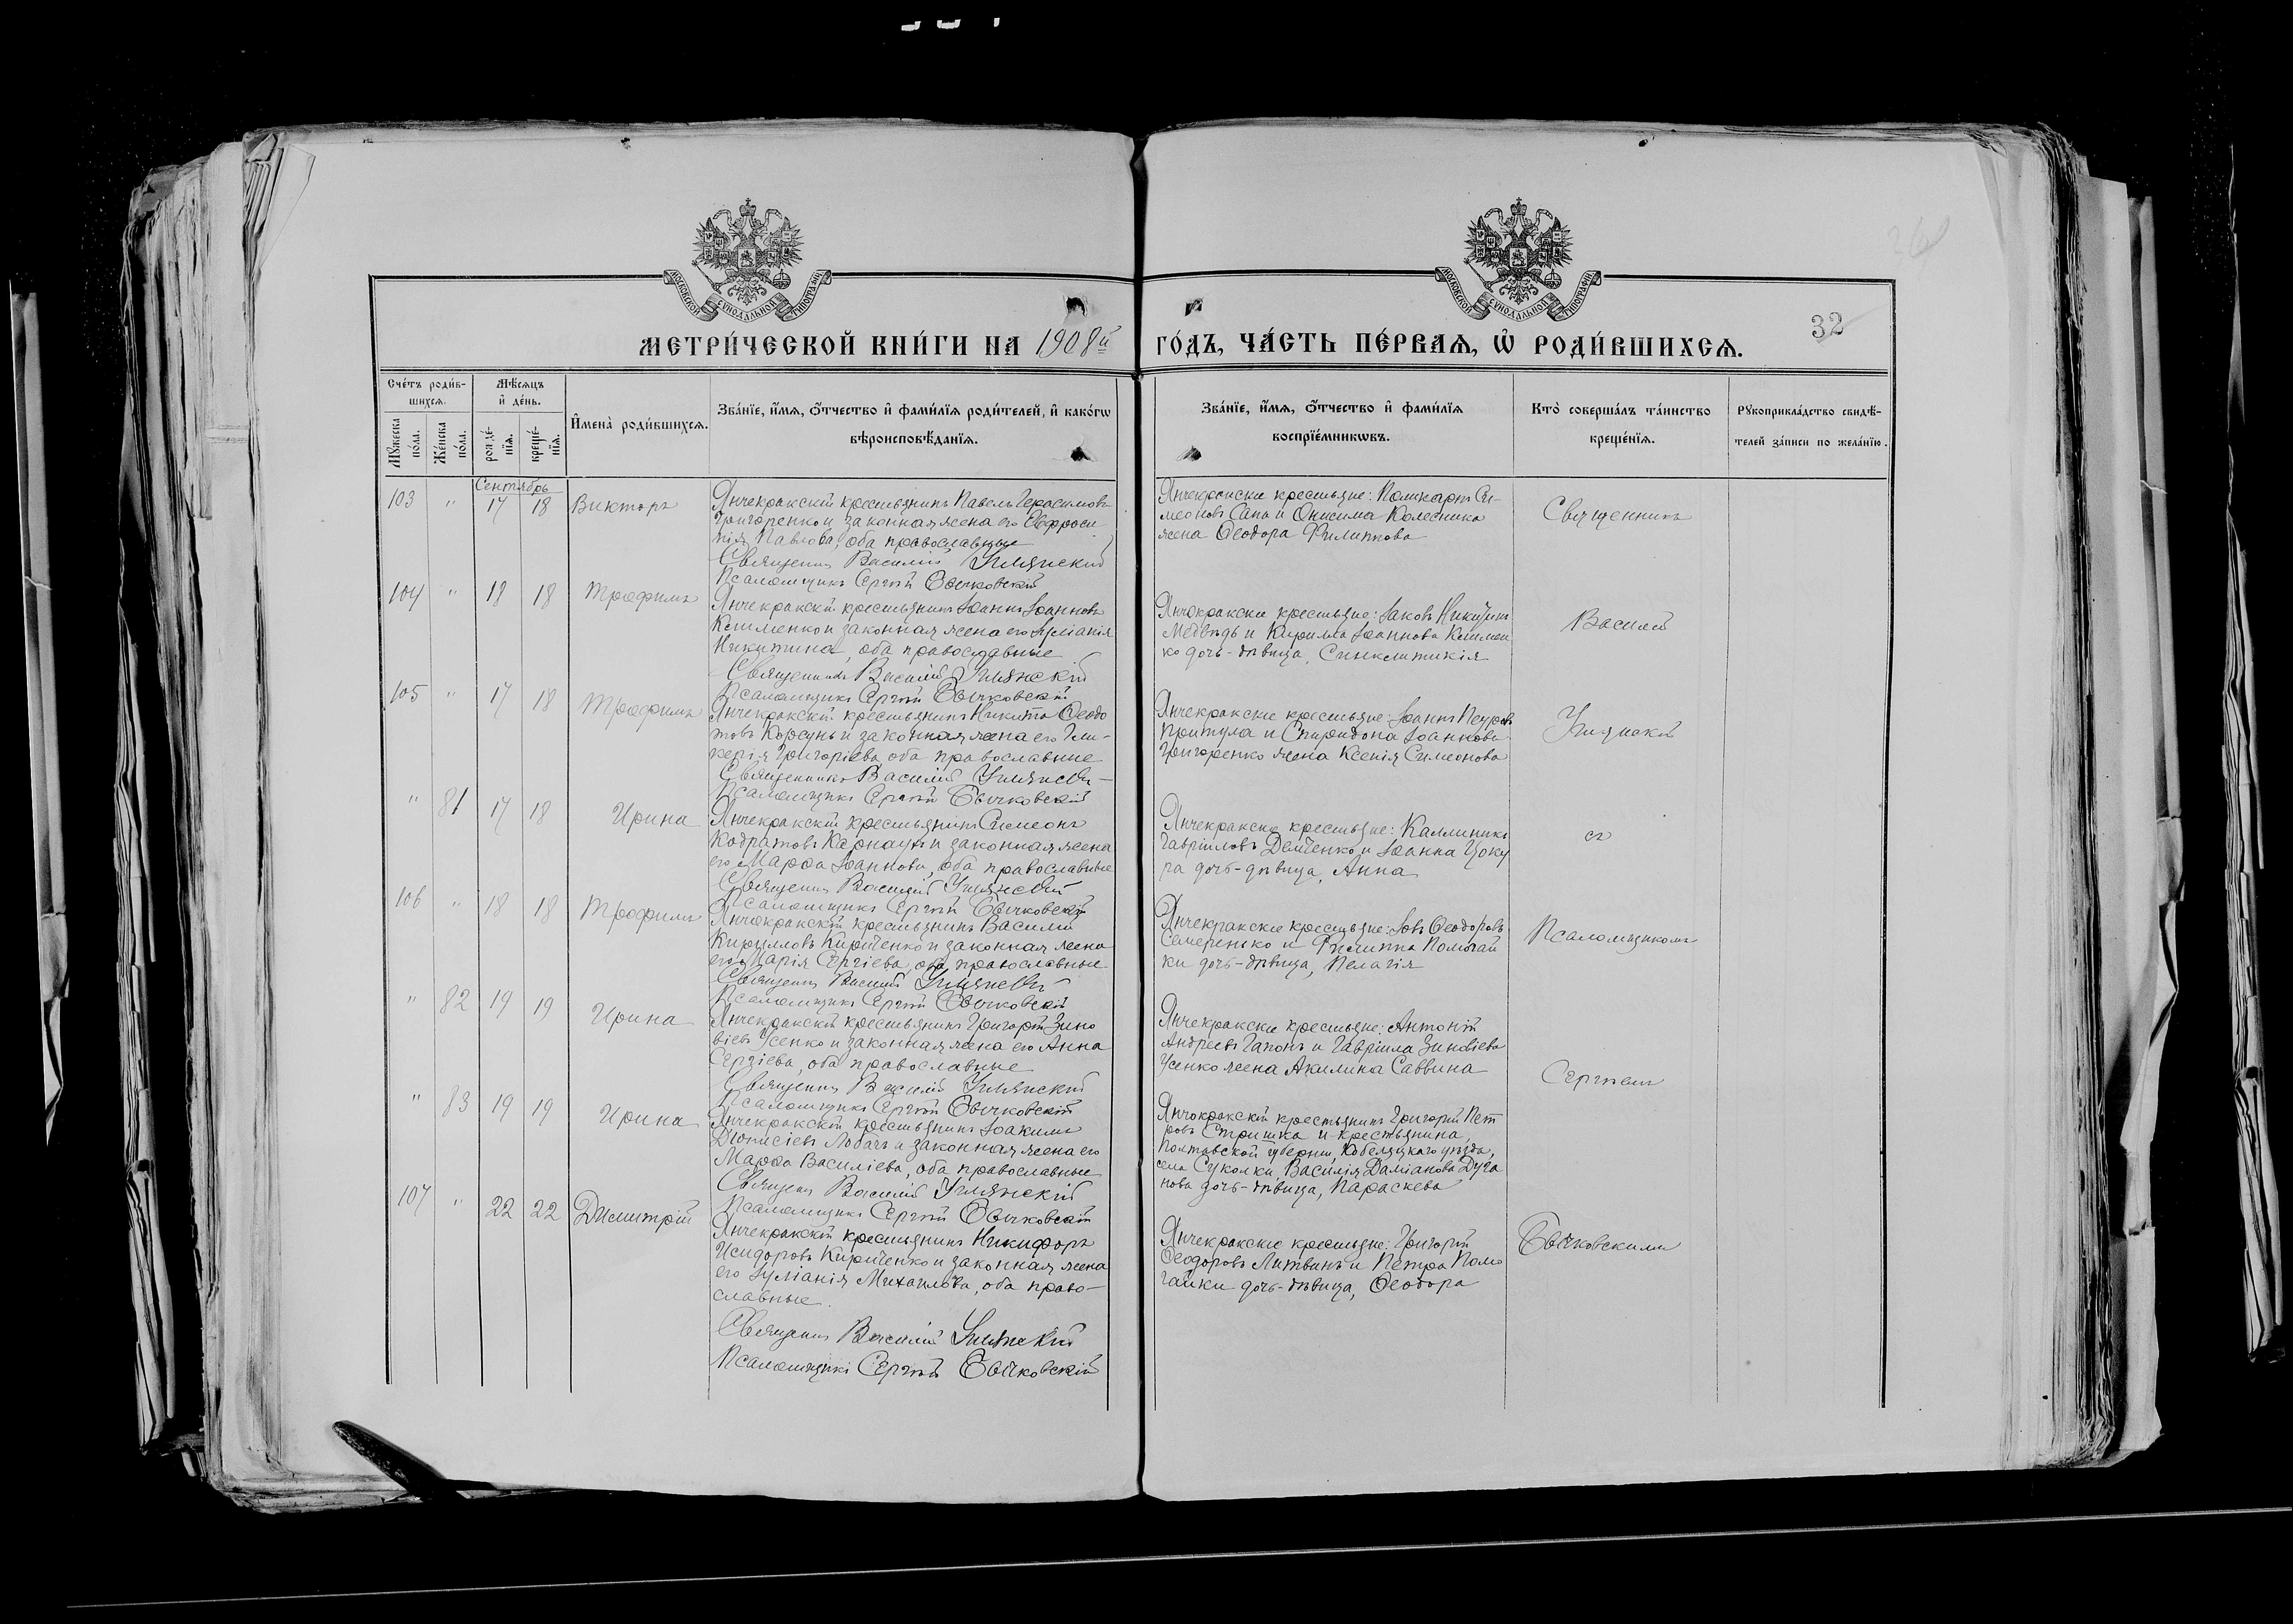 МОСКОВСКОЙ СѴНОДАЛЬНОЙ ТИПОГРАФІИ
МОСКОВСКОЙ СѴНОДАЛЬНОЙ ТИПОГРАФІИ
МЕТРИ́ЧЕСКОЙ КНИ́ГИ НА 1908й ГО́ДЪ, ЧА́СТЬ ПЕ́РВАѦ, Ѡ҆ РОДИ́ВШИХСѦ.
32
Сче́тъ роди́в-
шихсѧ.
Мѣ́сѧцъ
и҆ де́нь.
И҆мена̀ роди́вшихсѧ.
Зва́нїе, и҆́мѧ, ѻ҆́тчество и҆ фами́лїѧ роди́телей, и҆ како́гѡ
вѣроисповѣ́данїѧ.
Зва́нїе, и҆́мѧ, ѻ҆́тчество и҆ фами́лїѧ
воспрїе́мникѡвъ.
Кто̀ соверша́лъ та́инство
креще́нїѧ.
Рꙋкоприкла́дство свидѣ́-
телей за́писи по жела́нїю.
Мꙋ́жеска
по́ла.
Же́нска
по́ла.
рожде́-
нїѧ.
креще́-
нїѧ.
Сентябрь
103 " 17 18 Викторъ
Янчекракскій крестьянинъ Павелъ Герасимовъ
Григоренко и законная жена его Евфроси
нія Павлова, оба православные
Священникъ Василій Уманскій
Псаломщикъ Сергій Бычковскій
Янчекракскіе крестьяне: Поликарпъ Си-
меоновъ Сапа и Онисима Колесника
жена Ѳеодора Филиппова
Священникъ
104 " 18 18 Трофимъ
Янчекракскій крестьянинъ Іоаннъ Іоанновъ
Клименко и законная жена его Іуліанія
Никитина, оба православные
Священникъ Василій Уманскій
Псаломщикъ Сергій Бычковскій
Янчекракскіе крестьяне: Іаковъ Никитинъ
Медвѣдь и Кирилла Іоаннова Климен
ко дочь-дѣвица, Синклитикія
Василій
105 " 17 18 Трофимъ
Янчекракскій крестьянинъ Никита Ѳеодо
товъ Корсунь и законная жена его Гли-
керія Григоріева, оба православные
Священникъ Василій Уманскій
Псаломщикъ Сергій Бычковскій
Янчекракскіе крестьяне: Іоаннъ Петровъ
Притула и Спиридона Іоаннова
Григоренко жена Ксенія Симеонова
Уманскій
" 81 17 18 Ирина
Янчекракскій крестьянинъ Симеонъ
Кодратовъ Карнаухъ и законная жена
его Марѳа Іоаннова, оба православные
Священникъ Василій Уманскій
Псаломщикъ Сергій Бычковскій
Янчекракскіе крестьяне: Каллиникъ
Гавріиловъ Демченко и Іоанна Цоку
ра дочь-дѣвица, Анна
съ
106 " 18 18 Трофимъ
Янчекракскій крестьянинъ Василій
Кирилловъ Кириченко и законная жена
его Марія Сергіева, оба православные
Священникъ Василій Уманскій
Псаломщикъ Сергій Бычковскій
Янчекракскіе крестьяне: Іовъ Ѳеодоровъ
Семеренько и Филиппа Помогай
ки дочь-дѣвица, Пелагія
Псаломщикомъ
" 82 19 19 Ирина
Янчекракскій крестьянинъ Григорій Зино
віевъ Усенко и законная жена его Анна
Сергіева, оба православные
Священникъ Василій Уманскій
Псаломщикъ Сергій Бычковскій
Янчекракскіе крестьяне: Антоній
Андреевъ Гапонъ и Гавріила Зиновіева
Усенко жена Акилина Саввина
Сергіемъ
" 83 19 19 Ирина
Янчекракскій крестьянинъ Іоакимъ
Діонисіевъ Лобачъ и законная жена его
Марѳа Василіева, оба православные
Священникъ Василій Уманскій
Псаломщикъ Сергій Бычковскій
Янчекракскій крестьянинъ Григорій Пет
ровъ Стришка и крестьянина,
Полтавской губерніи, Кобелякскаго уѣзда,
села Суколки, Василія Даміанова Дуга
нова дочь-дѣвица, Параскева
107 " 22 22 Димитрій
Янчекракскій крестьянинъ Никифоръ
Исидоровъ Кириченко и законная жена
его Іуліанія Михаилова, оба право-
славные.
Священникъ Василій Уманскій
Псаломщикъ Сергій Бычковскій
Янчекракскіе крестьяне: Григорій
Ѳеодоровъ Литвинъ и Петра Помо
гайки дочь-дѣвица, Ѳеодора
Бычковскимъ